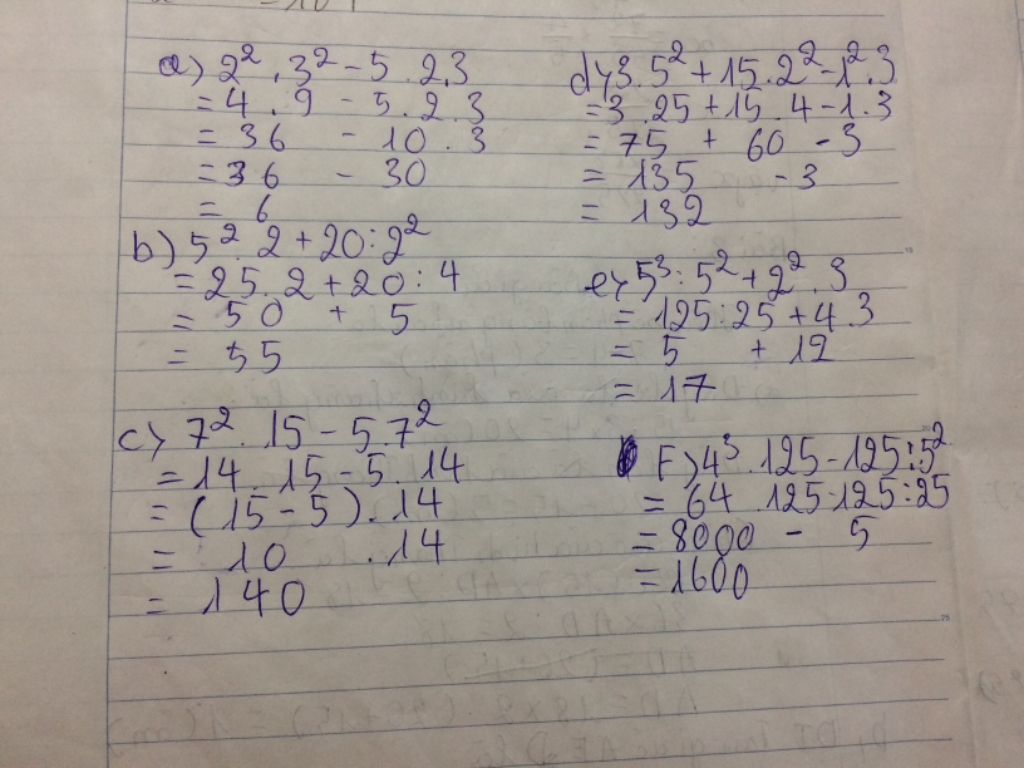 a) 2² . 3² - 5 . 2.3
= 4 . 9 - 5 . 2 . 3
= 36 - 10 . 3
= 36 - 30
= 6
b) 5² . 2 + 20 : 2²
= 25 . 2 + 20 : 4
= 50 + 5
= 55
c) 7² . 15 - 5 . 7²
= 14 . 15 - 5 . 14
= (15 - 5) . 14
= 10 . 14
= 140
d) 3 . 5² + 15 . 2² - 1² . 3
= 3 . 25 + 15 . 4 - 1 . 3
= 75 + 60 - 3
= 135 - 3
= 132
e) 5³ : 5² + 2² . 3
= 125 : 25 + 4 . 3
= 5 + 12
= 17
F) 4³ . 125 - 125 : 5²
= 64 . 125 - 125 : 25
= 8000 - 5
= 1600